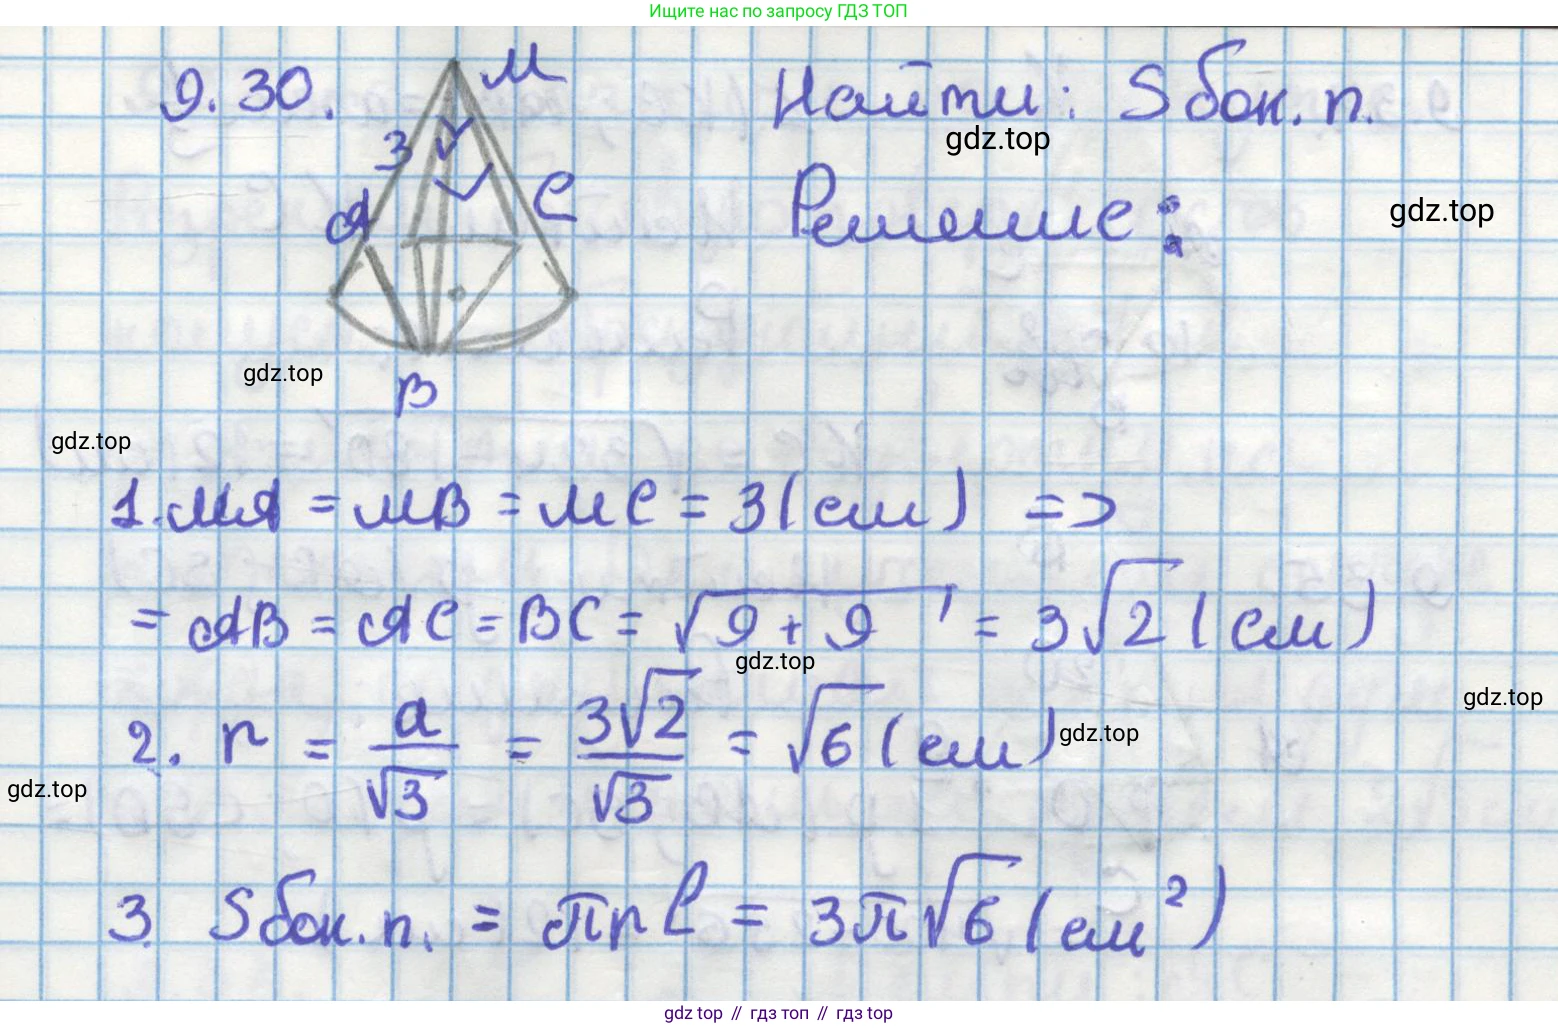 Ищите нас по запросу ГДЗ ТОП
9.30.
M
3
A
C
B
Найти: Sбок.п.
gdz.top
Решение:
gdz.top
gdz.top
gdz.top
1. MA = MB = MC = 3(см) =>
= AB = AC = BC = √9+9 = 3√2 (см)
gdz.top
gdz.top
2. r = a/√3 = 3√2/√3 = √6 (см)
gdz.top
gdz.top
3. Sбок.п. = πrl = 3π√6 (см²)
gdz.top // гдз топ // гдз top